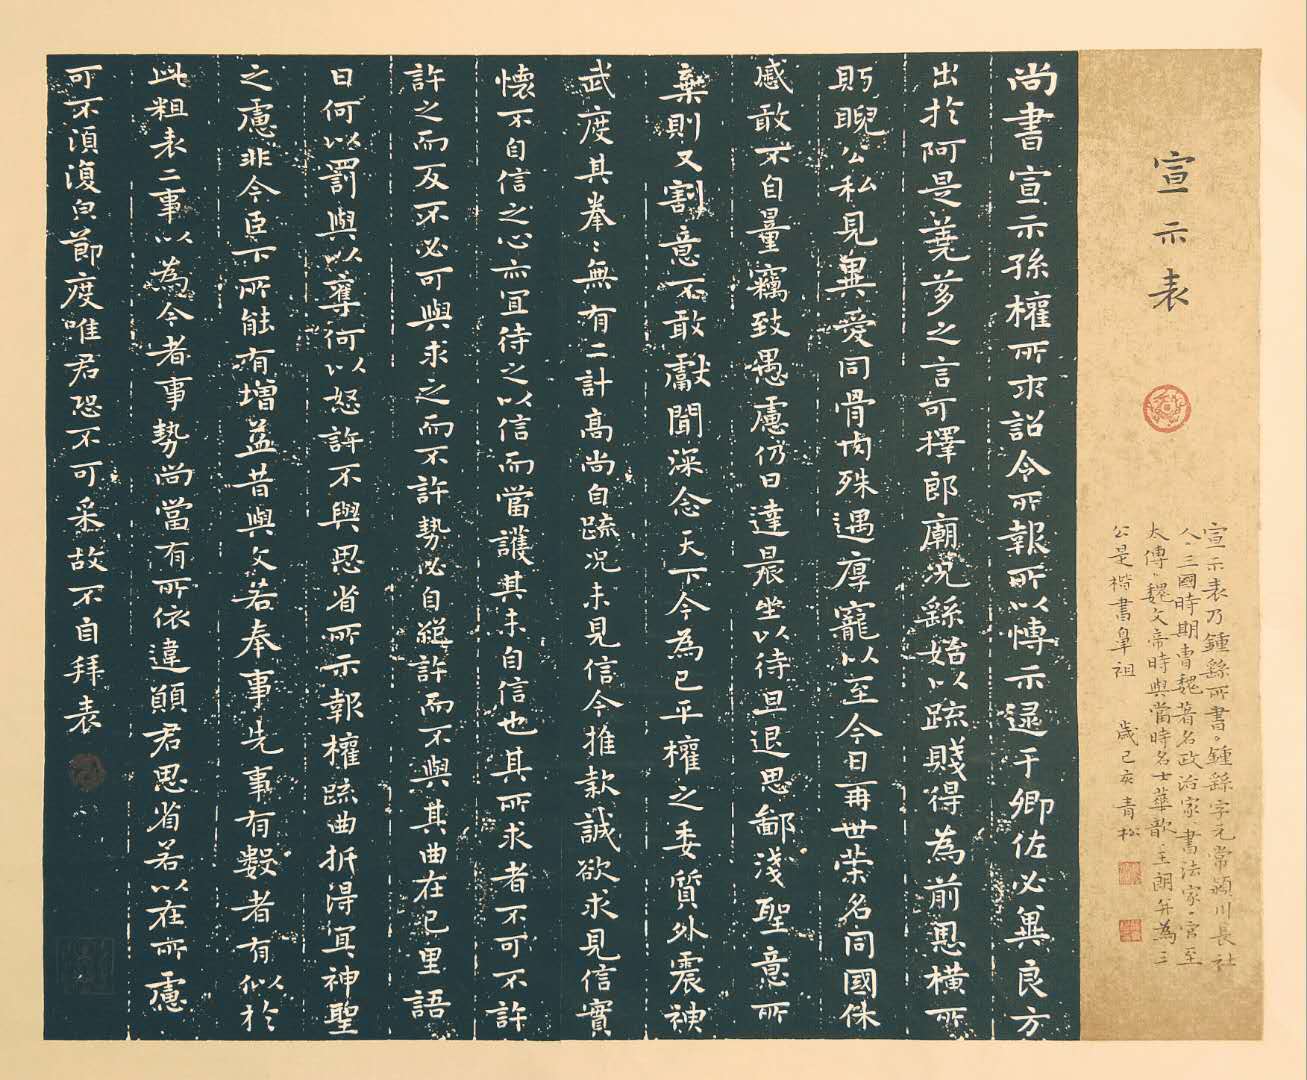 宣示表
宣示表乃鍾繇所書。鍾繇字元常潁川長社
人。三國時期曹魏著名政治家書法家。官至
太傅。魏文帝時與當時名士華歆王朗并為三
公是楷書鼻祖 歲己亥青松
尚書宣示孫權所求詔令所報所以博示逮于卿佐必冀良方
出於阿是蒭蕘之言可擇郎廟況繇始以疏賤得為前恩橫所
盻睨公私見異愛同骨肉殊遇厚寵以至今日再世榮名同國休
慼敢不自量竊致愚慮仍日達晨坐以待旦退思鄙淺聖意所
棄則又割意不敢獻聞深念天下今為已平權之委質外震神
武度其拳〻無有二計高尚自疏況未見信今推款誠欲求見信實
懷不自信之心亦宜待之以信而當護其未自信也其所求者不可不許
許之而反不必可與求之而不許勢必自絕許而不與其曲在己里語
曰何以罰與以奪何以怒許不與思省所示報權疏曲折得宜神聖
之慮非今臣下所能有增益昔與文若奉事先事有數者有似於
此粗表二事以為今者事勢尚當有所依違願君思省若以在所慮
可不須復白節度唯君恐不可采故不自拜表